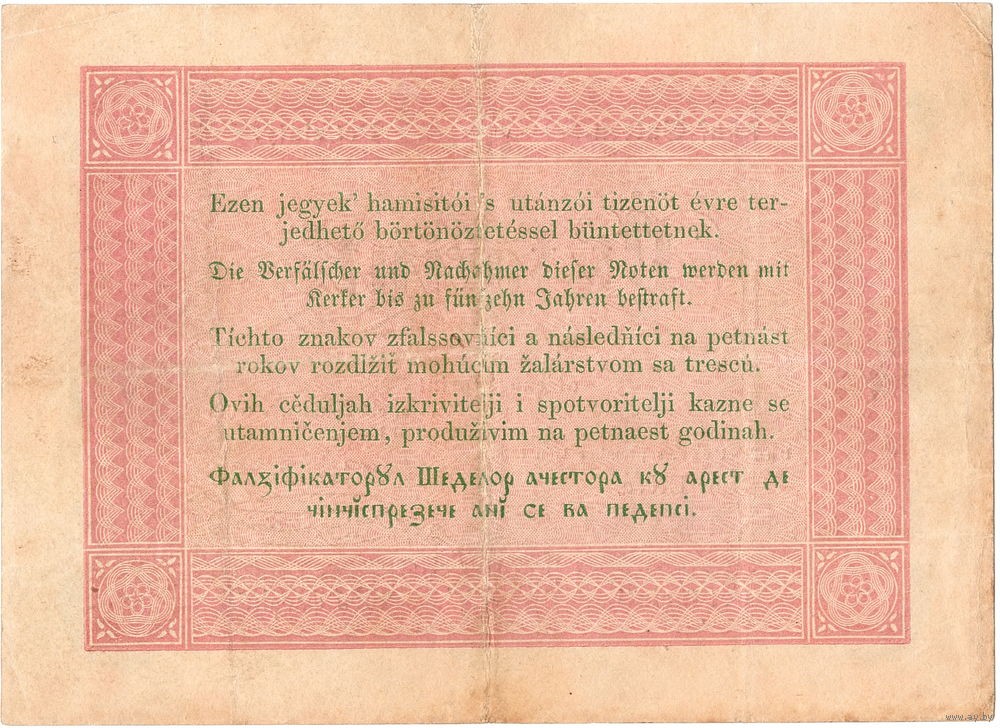 Ezen jegyek' hamisitói 's utánzói tizenöt évre ter-
jedhető börtönöztetéssel büntettetnek.
Die Verfälscher und Nachahmer dieser Noten werden mit
Kerker bis zu fünfzehn Jahren bestraft.
Tíchto znakov zfalssovňíci a následňíci na petnást
rokov rozdĺžiť mohúcim žalárstvom sa trescú.
Ovih cěduljah izkrivitelji i spotvoritelji kazne se
utamničenjem, produživim na petnaest godinah.
Фалꙁіфікаторꙋл Шеделор ачестора кꙋ арест де
чінчĭспреꙁече анĭ се ва педепсі.
www.ay.by